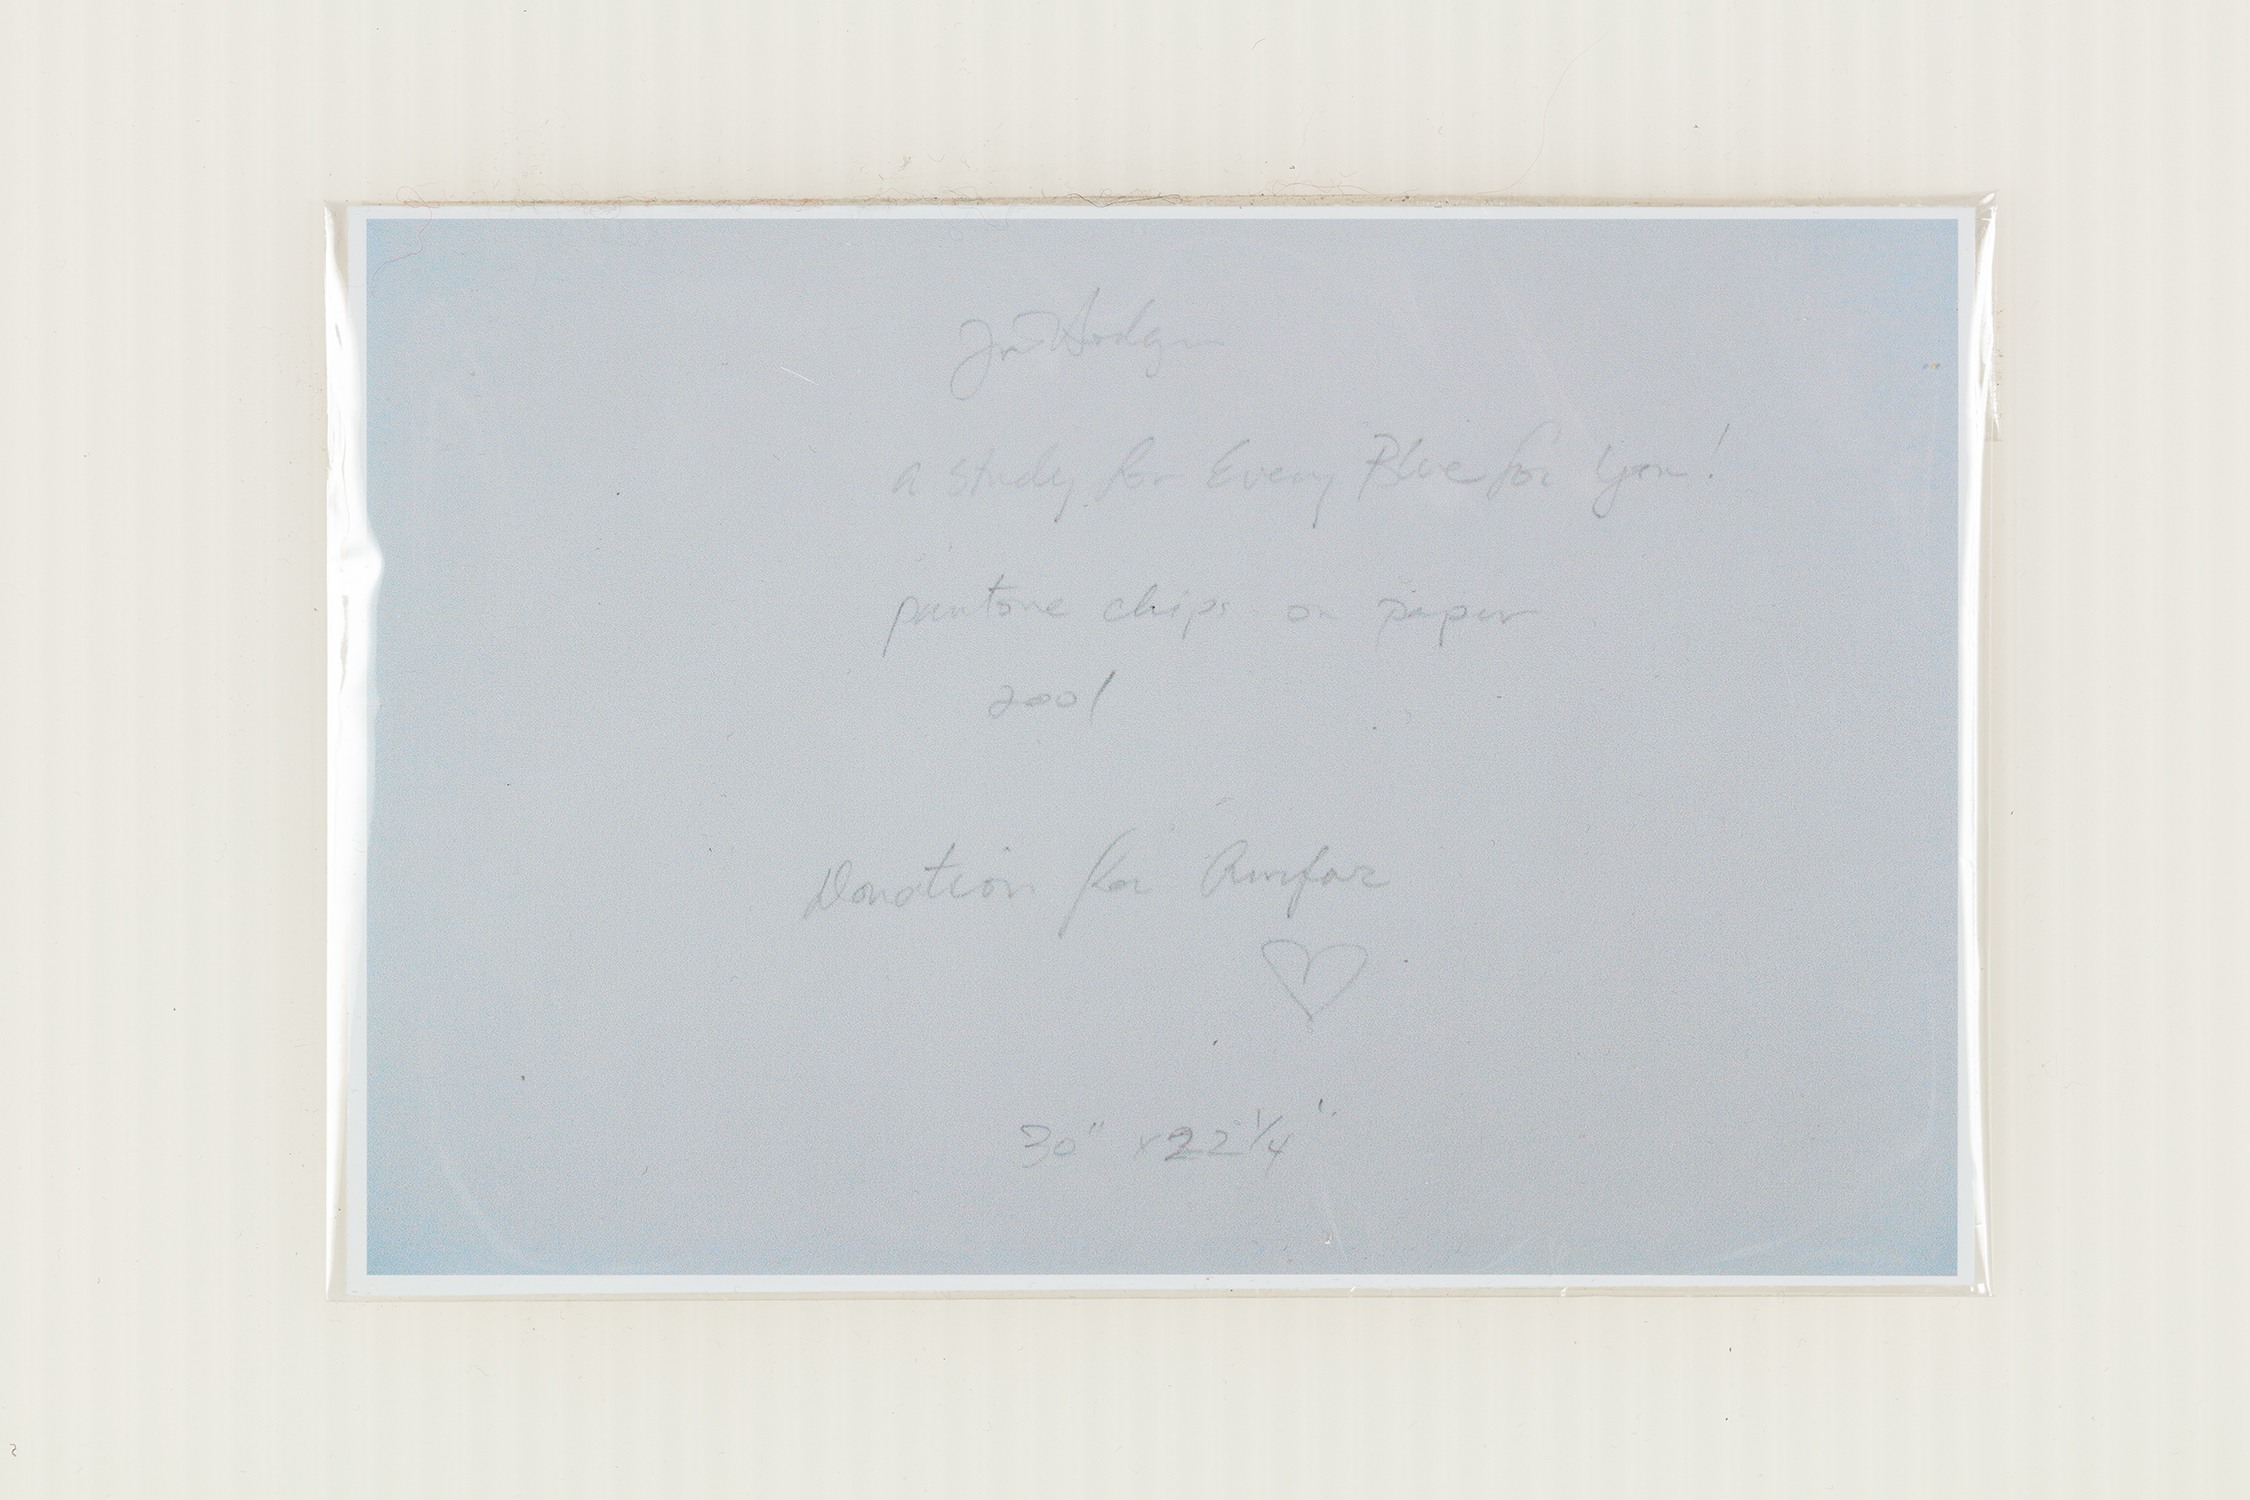 Jim Hodges
a study for Every Blue for You!
pantone chips on paper
2001
Donation for Amfar
30" x 22 1/4"